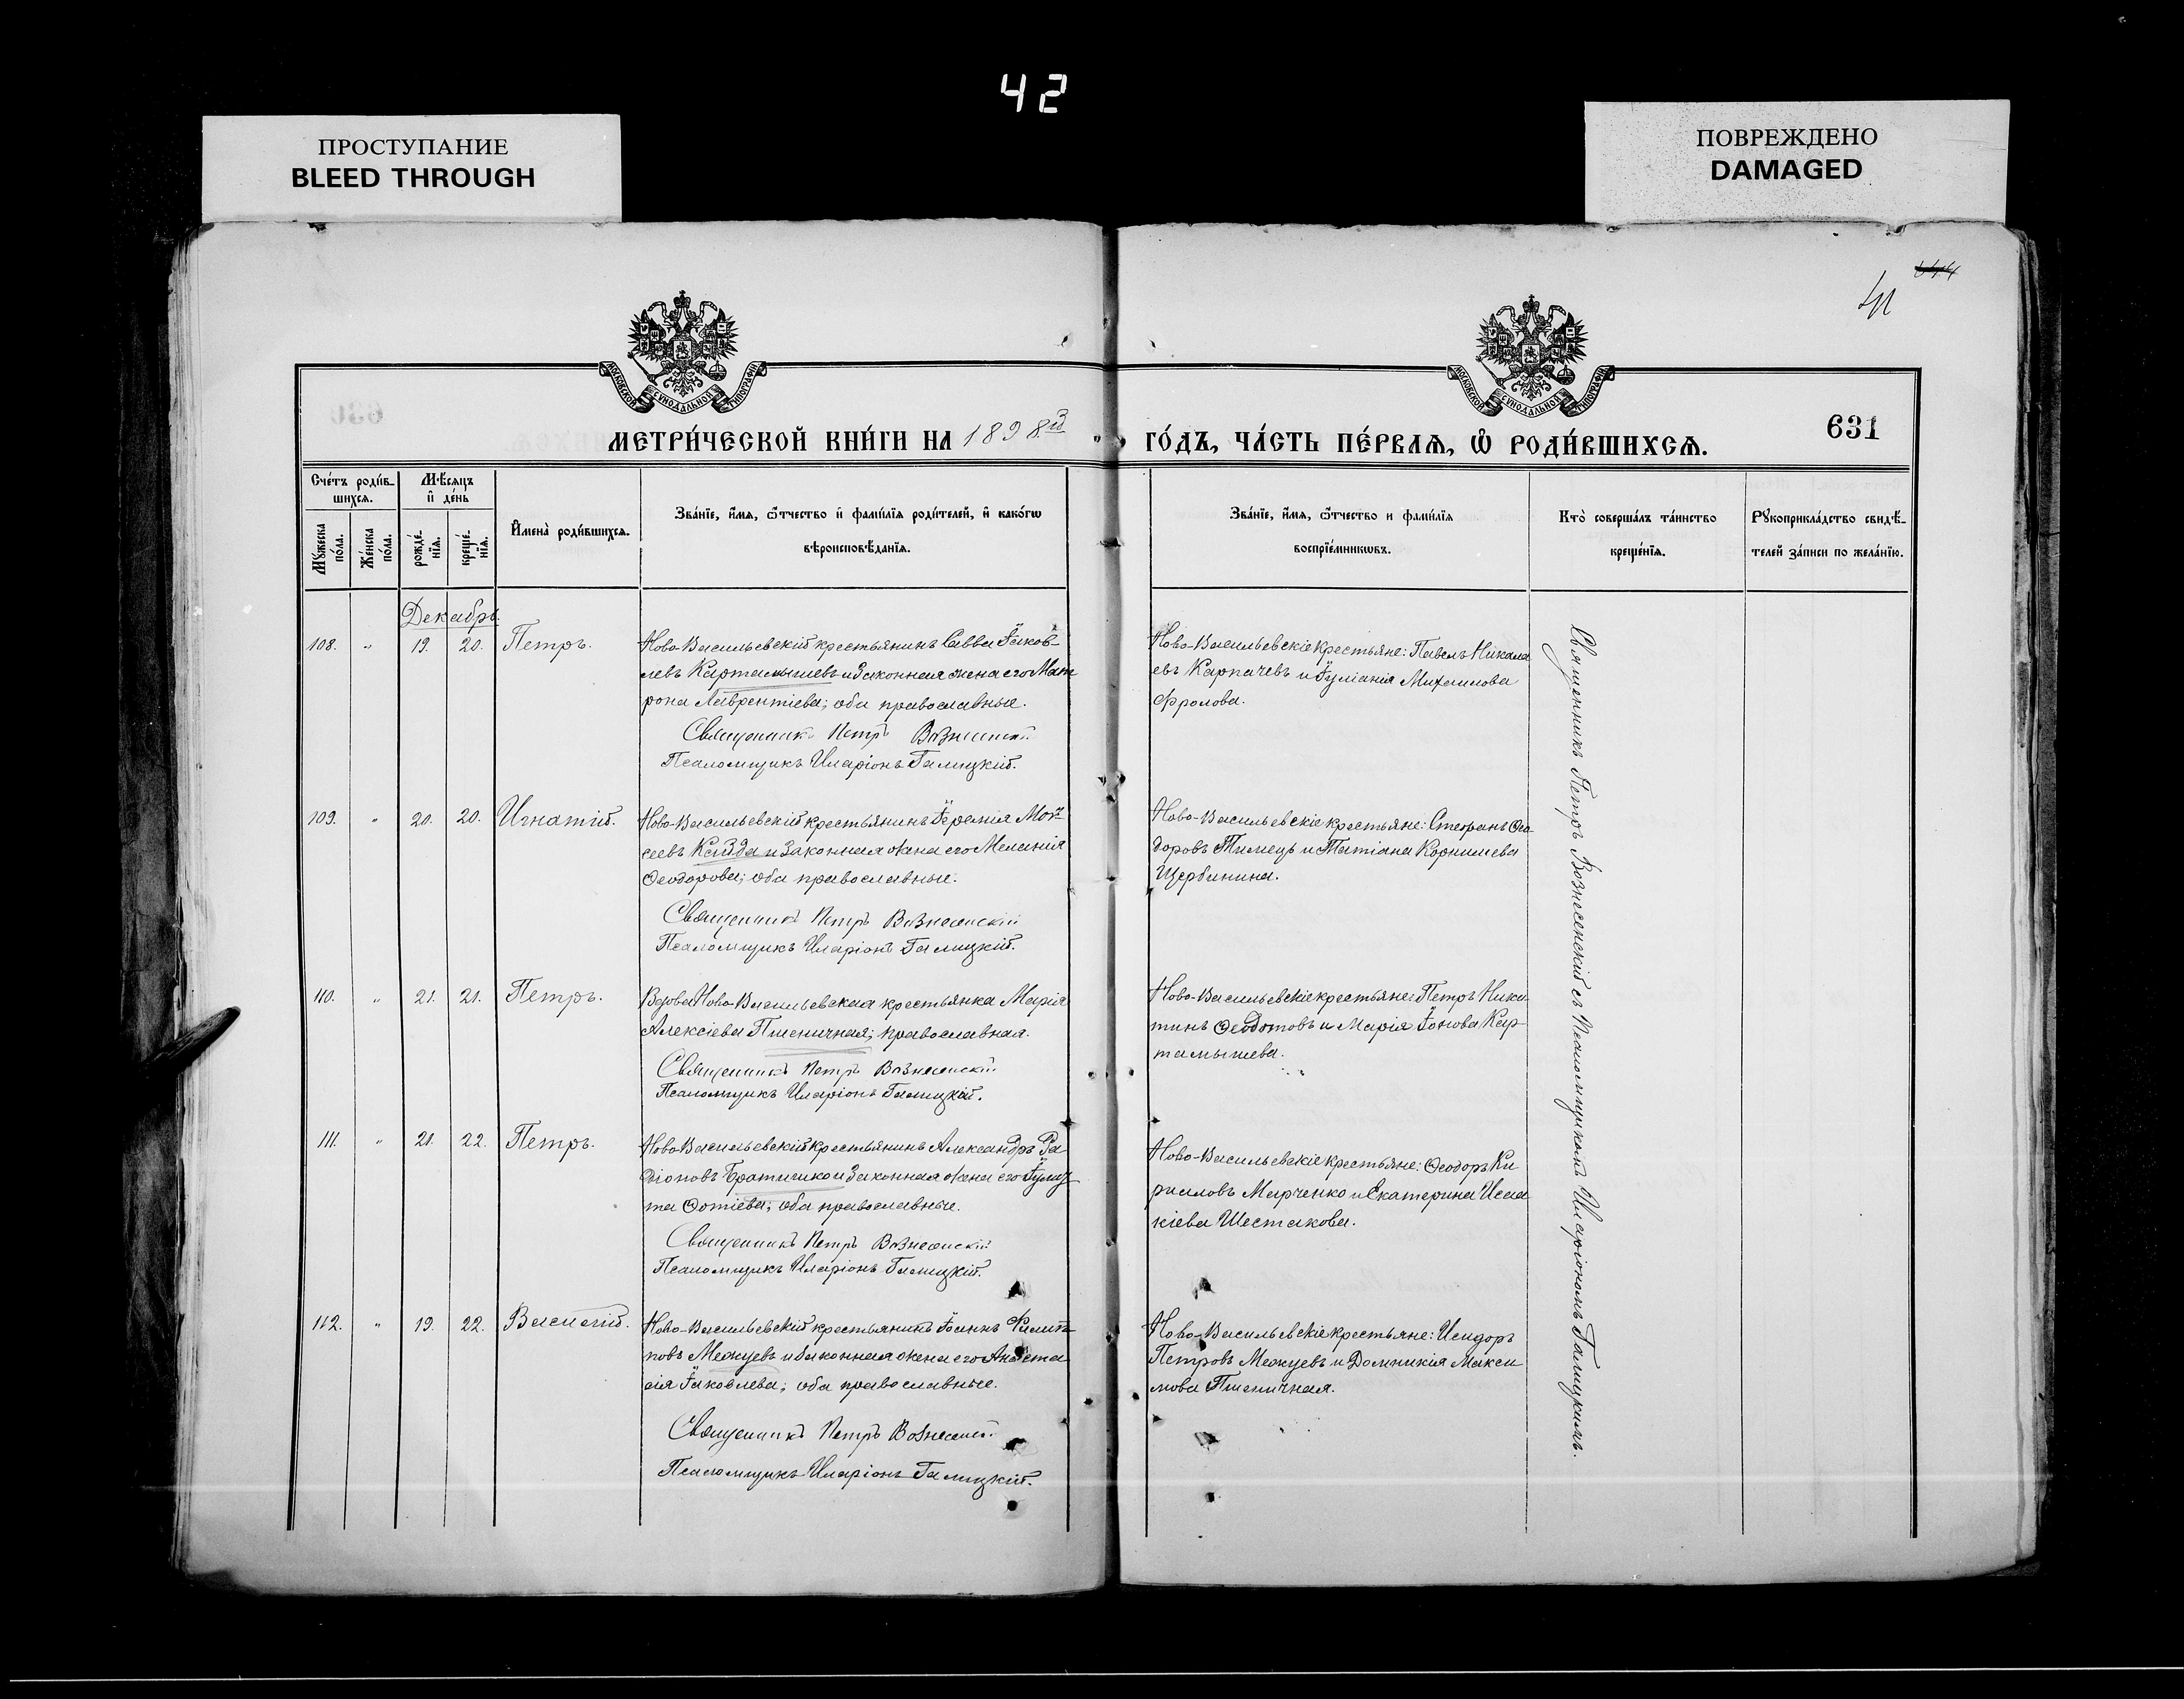 42
ПРОСТУПАНИЕ
BLEED THROUGH
ПОВРЕЖДЕНО
DAMAGED
41
631
МОСКОВСКОЙ СѴНОДАЛЬНОЙ ТИПОГРАФІИ
МОСКОВСКОЙ СѴНОДАЛЬНОЙ ТИПОГРАФІИ
МЕТРИ́ЧЕСКОЙ КНИ́ГИ НА 1898й ГО́ДЪ, ЧА́СТЬ ПЕ́РВАѦ, Ѡ҆ РОДИ́ВШИХСѦ.
Сче́тъ роди́в-
шихсѧ.
Мѣ́сѧцъ
и҆ де́нь
Мꙋ́жеска
по́ла.
Же́нска
по́ла.
рожде́-
нїѧ.
креще́-
нїѧ.
И҆мена̀ роди́вшихсѧ.
Зва́нїе, и҆́мѧ, ѻ҆́тчество и҆ фами́лїѧ роди́телей, и҆ како́гѡ
вѣроисповѣ́данїѧ.
Зва́нїе, и҆́мѧ, ѻ҆́тчество и фами́лїѧ
воспрїе́мникѡвъ.
Кто̀ соверша́лъ та́инство
креще́нїѧ.
Рꙋкоприкла́дство свидѣ́-
телей за́писи по жела́нїю.
Декабрь.
108. " 19. 20. Петръ.
Ново-Васильевскій крестьянинъ Савва Іаков-
левъ Картамышевъ и законная жена его Мат
рона Лаврентіева; оба православные.
Священникъ Петръ Вознесенскій
Псаломщикъ Иларіонъ Галицкій.
Ново-Васильевскіе крестьяне: Павелъ Никола
евъ Карпачевъ и Іуліанія Михаилова
Фролова.
109. " 20. 20. Игнатій.
Ново-Васильевскій крестьянинъ Іеремія Мои-
сеевъ Кайда и законная жена его Меланія
Ѳеодорова; оба православные.
Священникъ Петръ Вознесенскій
Псаломщикъ Иларіонъ Галицкій.
Ново-Васильевскіе крестьяне: Стефанъ Ѳео
доровъ и Татіана Корнилиева
Щербинина.
110. " 21. 21. Петръ.
Вдова Ново-Васильевская крестьянка Марія
Алексіева Пшеничная; православная.
Священникъ Петръ Вознесенскій
Псаломщикъ Иларіонъ Галицкій.
Ново-Васильевскіе крестьяне: Петръ Ники
тинъ Ѳеодотовъ и Марія Іонова Кар-
тамышева.
111. " 21. 22. Петръ.
Ново-Васильевскій крестьянинъ Александръ Ра
діоновъ Братишко и законная жена его Іулит
та Фотіева; оба православные.
Священникъ Петръ Вознесенскій
Псаломщикъ Иларіонъ Галицкій.
Ново-Васильевскіе крестьяне: Ѳеодоръ Ки
рилловъ Марченко и Екатерина Исаа
кіева Шестакова.
112. " 19. 22. Василій.
Ново-Васильевскій крестьянинъ Іоаннъ Филип-
повъ Межуевъ и законная жена его Анаста
сія Іаковлева; оба православные.
Священникъ Петръ Вознесенскій
Псаломщикъ Иларіонъ Галицкій.
Ново-Васильевскіе крестьяне: Исидоръ
Петровъ Межуевъ и Домникія Макси
мова Пшеничная.
Священникъ Петръ Вознесенскій съ Псаломщикомъ Иларіономъ Галицкимъ.